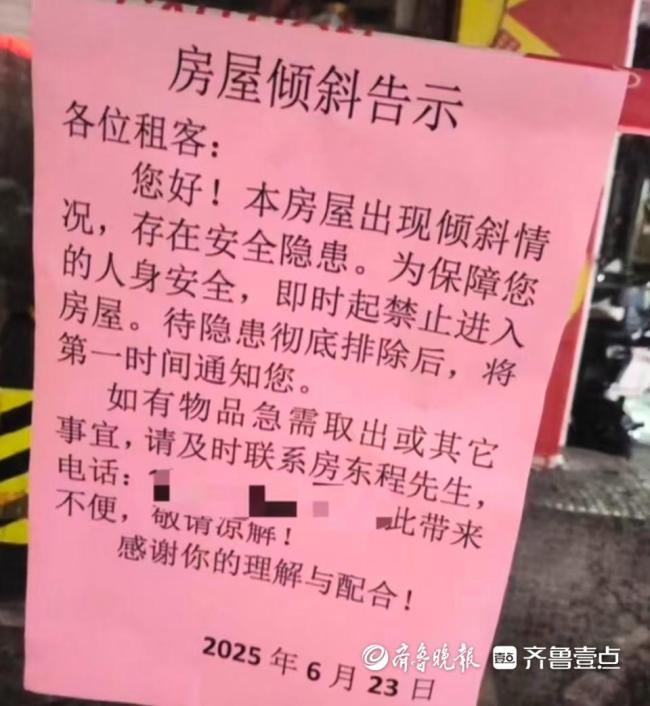 房屋倾斜告示
各位租客：
您好！本房屋出现倾斜情
况，存在安全隐患。为保障您
的人身安全，即时起禁止进入
房屋。待隐患彻底排除后，将
第一时间通知您。
如有物品急需取出或其它
事宜，请及时联系房东程先生，
电话：
此带来
不便，敬请凉解！
感谢你的理解与配合！
2025年6月23日
齐鲁晚报 齐鲁壹点